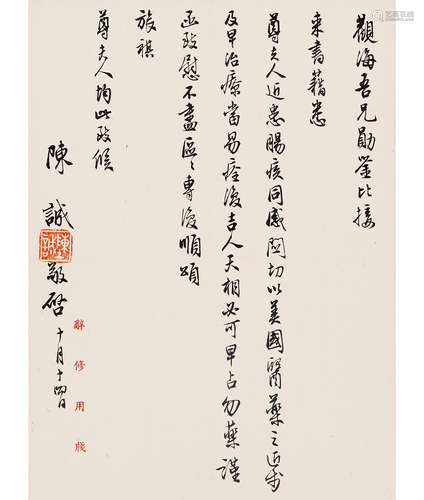 觀海吾兄勛鑒比接
來書藉悉
尊夫人近患腸疾同感關切以美國醫藥之進步
及早治療當易痊復吉人天相必可早占勿藥謹
函致慰不盡區區專復順頌
旅祺
尊夫人均此致候
陳誠敬啓十月十四日
辭修用牋